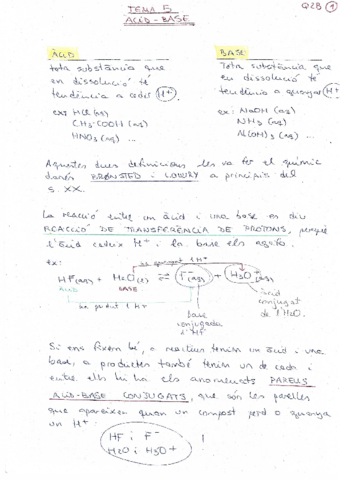 TEMA 5
ACID-BASE
Q2B 1
ÀCID
tota substància que
en dissolució té
tendència a cedir H+
ex: HCl (aq)
CH3-COOH (aq)
HNO3 (aq) ...
BASE
Tota substància que
en dissolució té
tendència a guanyar H+
ex: NaOH (aq)
NH3 (aq)
Al(OH)3 (aq) ...
Aquestes dues definicions les va fer el químic
danès BRØNSTED i LOWRY a principis del
s. XX.
La reacció entre un àcid i una base es diu
REACCIÓ DE TRANSFERÈNCIA DE PROTONS, perquè
l'àcid cedeix H+ i la base els agafa.
ex:
ha guanyat 1 H+
HF(aq) + H2O(l) ⇄ F-(aq) + H3O+(aq)
ÀCID BASE
ha perdut 1 H+
base
conjugada
d'HF
àcid
conjugat
de l'H2O.
Si ens fixem bé, a reactius tenim un àcid i una
base, a productes també tenim un de cada i
entre ells hi ha els anomenats PARELLS
ACID-BASE CONJUGATS, que són les parelles
que apareixen quan un compost perd o guanya
un H+
HF i F-
H2O i H3O+